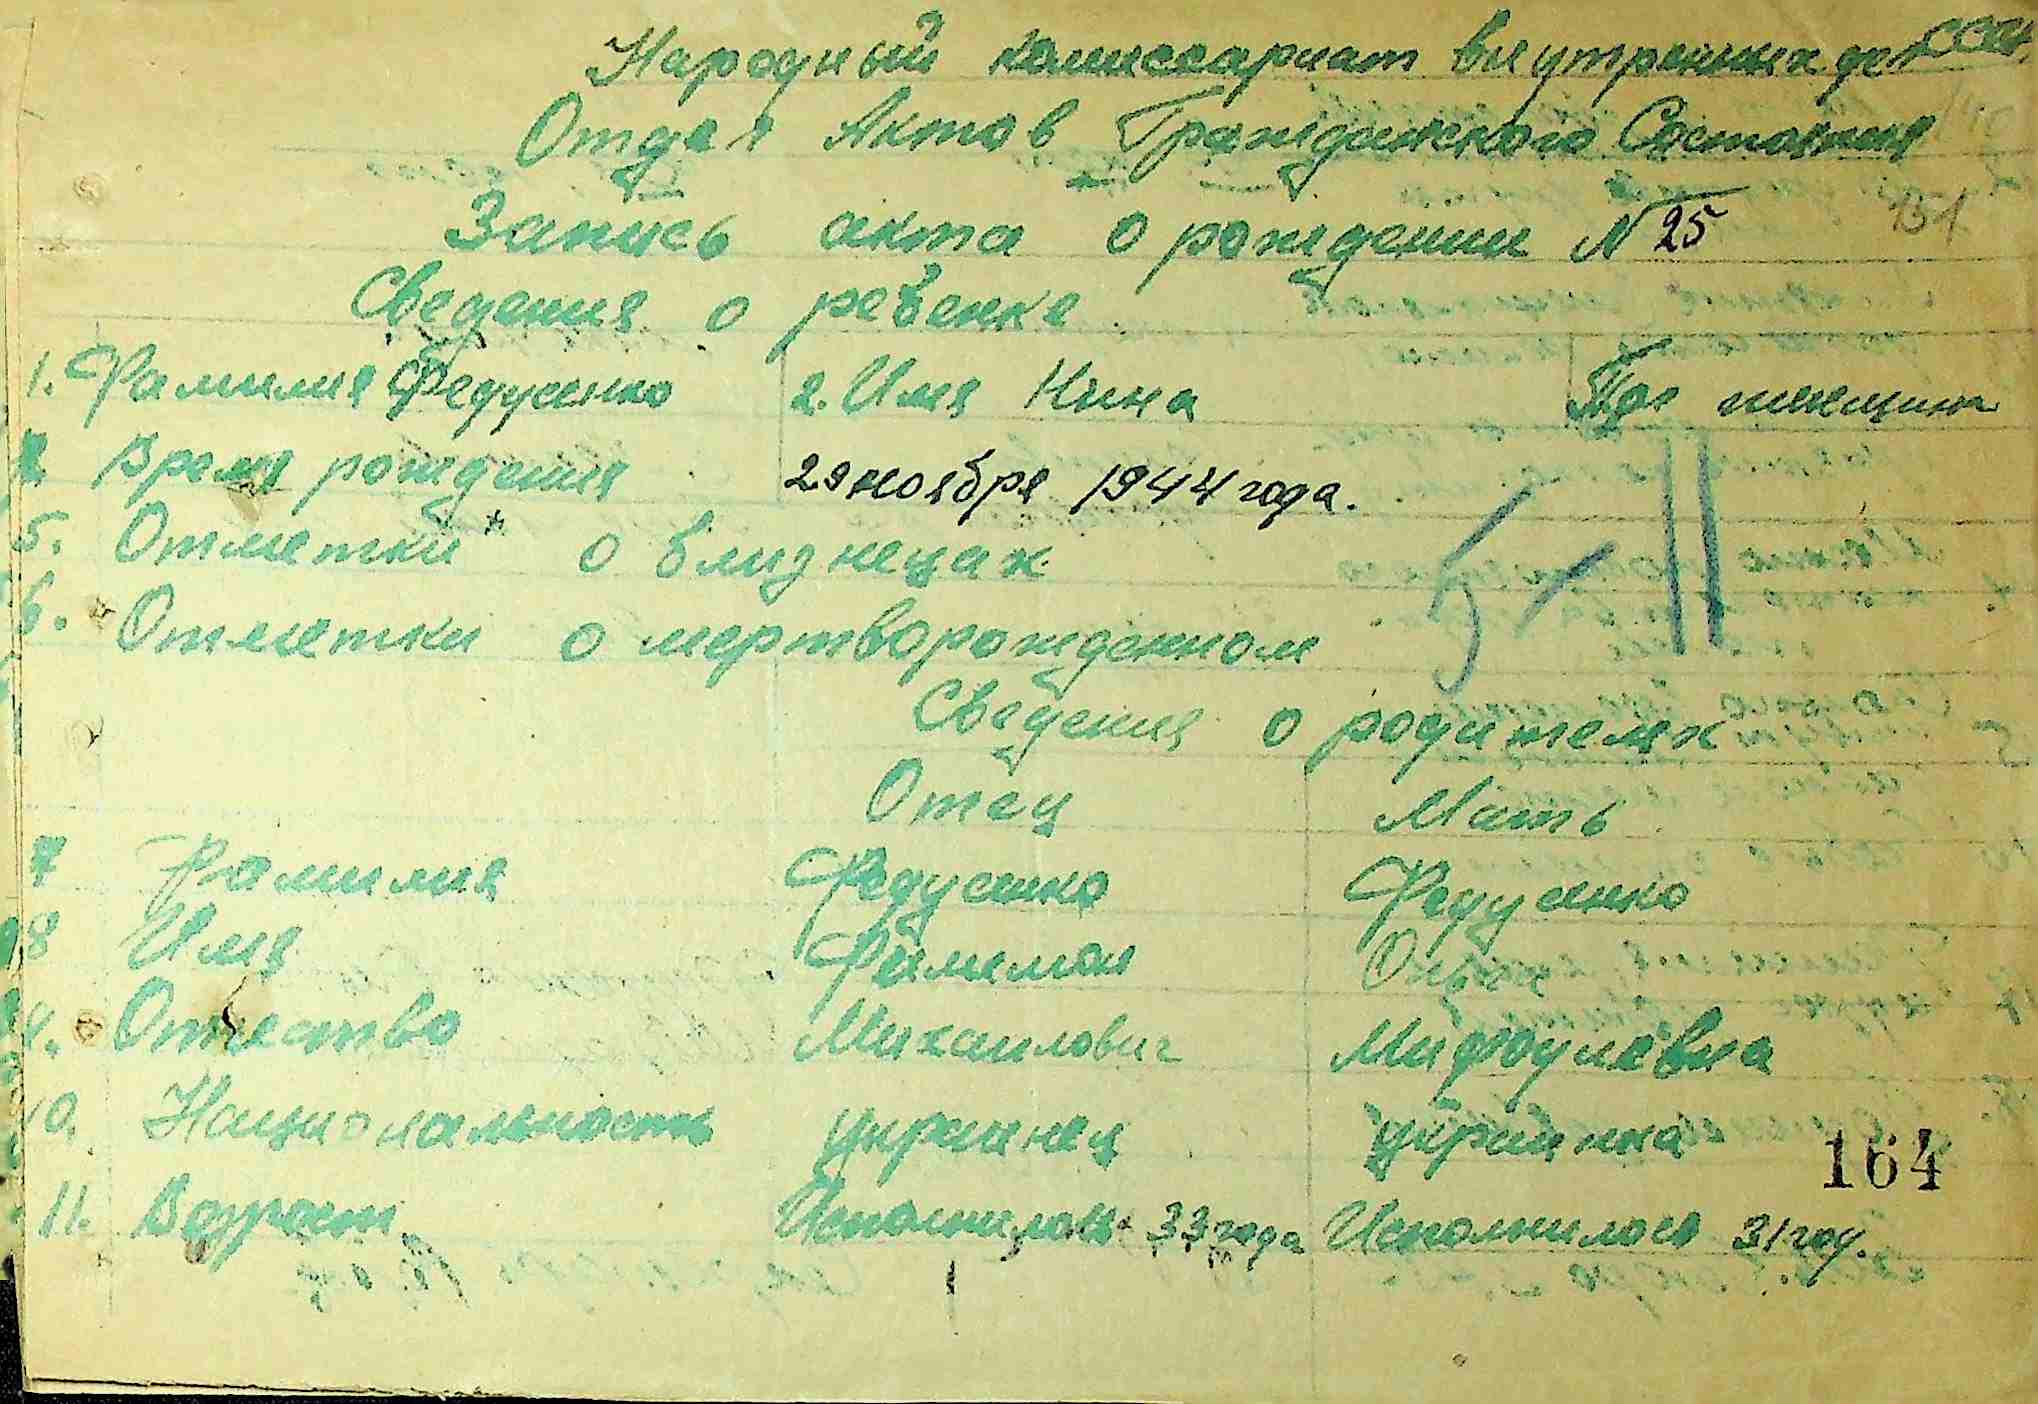 Народный комиссариат внутренних дел СССР
Отдел Актов Гражданского Состояния
Запись акта о рождении N 25 151
Сведения о ребенке
1. Фамилия Федусенко 2. Имя Нина Пол женщина
Время рождения 29 ноября 1944 года.
5. Отметки о близнецах
6. Отметки о мертворожденном
Сведения о родителях
Отец Мать
7 Фамилия Федусенко Федусенко
8 Имя Филимон Ольга
Отчество Михаилович
10. Национальность украинец украинка
164
11. Возраст Исполнилось 33 года Исполнилось 31 год.